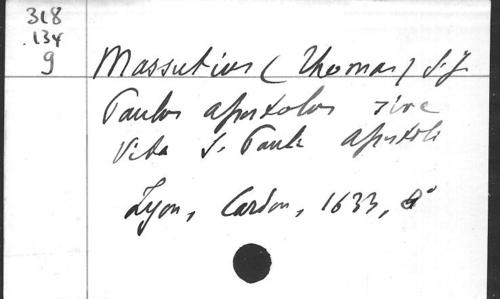 318
.134
9
Massutius (Thomas) S.J.
Paulus apostolus sive
Vita S. Pauli Apostoli
Lyon, Cardon, 1633, 8°